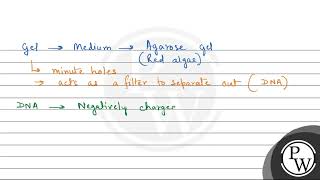 Gel → Medium → Agarose gel
(Red algae)
↳ minute holes
→ acts as a filter to separate out (DNA)
DNA → Negatively charger
PW